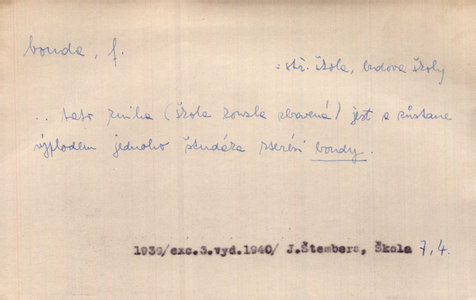 bouda, f.
= stř. škola, budova školy
.. tato kniha (škola kouzla zbavená) jest a zůstane
výplodem jednoho študáka zserérí boudy.
1939/exc.3.vyd.1940/ J.Štembera, Škola 7,4.